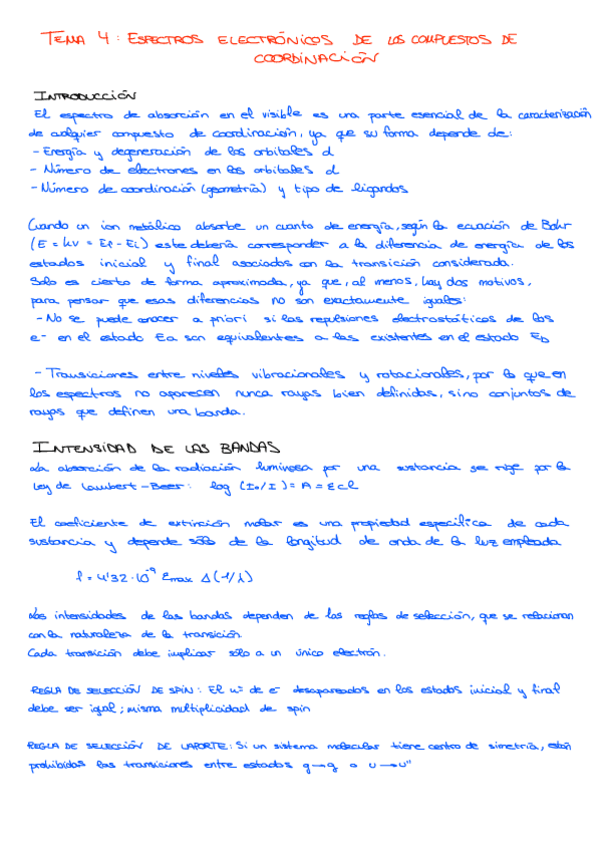 TEMA 4: ESPECTROS ELECTRÓNICOS DE LOS COMPUESTOS DE
COORDINACIÓN
INTRODUCCIÓN
El espectro de absorción en el visible es una parte esencial de la caracterización
de cualquier compuesto de coordinación, ya que su forma depende de:
- Energía y degeneración de los orbitales d
- Número de electrones en los orbitales d
- Número de coordinación (geometría) y tipo de ligandos
Cuando un ion metálico absorbe un cuanto de energía, según la ecuación de Bohr
(E = hν = Ef - Ei) este debería corresponder a la diferencia de energía de los
estados inicial y final asociados con la transición considerada.
Solo es cierto de forma aproximada, ya que, al menos, hay dos motivos,
para pensar que esas diferencias no son exactamente iguales:
- No se puede conocer a priori si las repulsiones electrostáticas de los
e- en el estado Ea son equivalentes a las existentes en el estado Eb
- Transiciones entre niveles vibracionales y rotacionales, por lo que en
los espectros no aparecen nunca rayas bien definidas, sino conjuntos de
rayas que definen una banda.
INTENSIDAD DE LAS BANDAS
La absorción de la radiación luminosa por una sustancia se rige por la
Ley de Lambert-Beer: log (I₀/I) = A = εcl
El coeficiente de extinción molar es una propiedad específica de cada
sustancia y depende sólo de la longitud de onda de la luz empleada
f = 4'32·10⁻⁹ εmax Δ(1/λ)
Las intensidades de las bandas dependen de las reglas de selección, que se relacionan
con la naturaleza de la transición
Cada transición debe implicar sólo a un único electrón.
REGLA DE SELECCIÓN DE SPIN: El nº de e- desapareados en los estados inicial y final
debe ser igual; misma multiplicidad de spin
REGLA DE SELECCIÓN DE LAPORTE: Si un sistema molecular tiene centro de simetría, están
prohibidas las transiciones entre estados g→g o u→u"